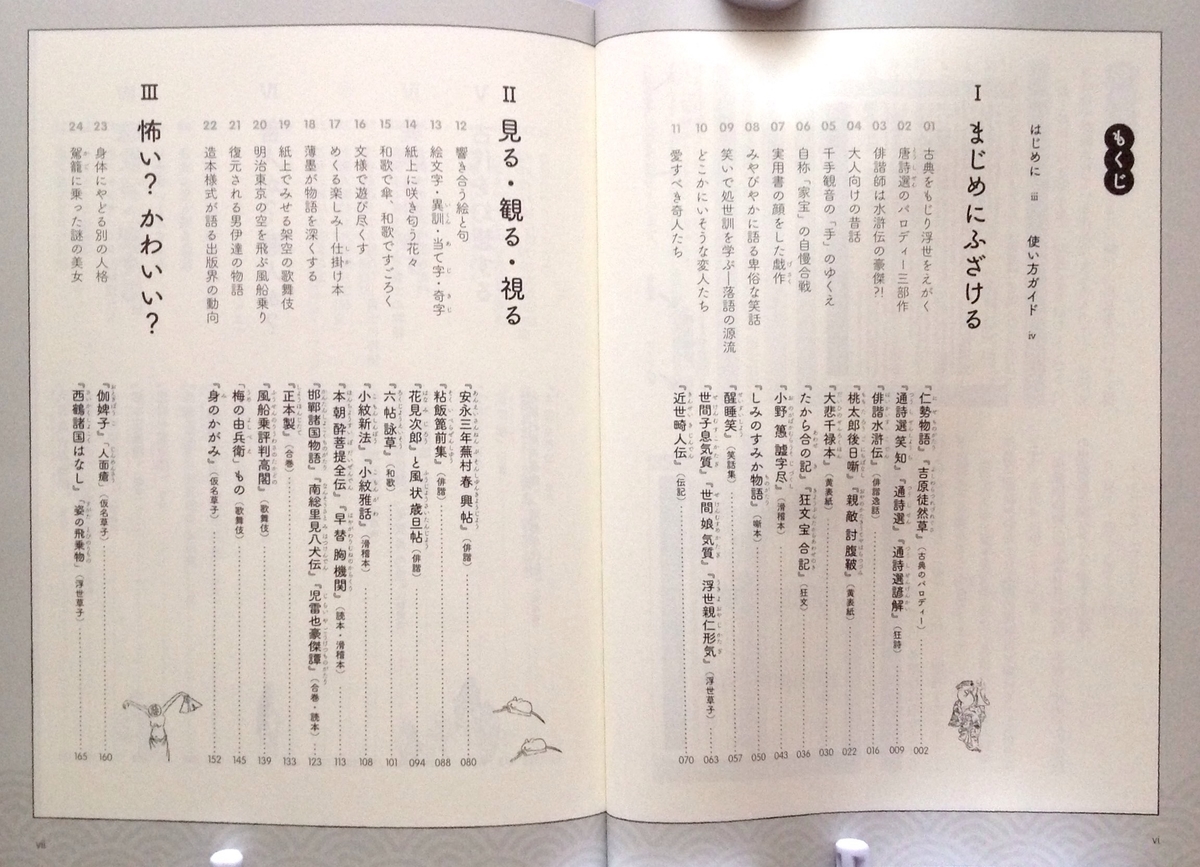 もくじ
はじめに iii 使い方ガイド iv
I まじめにふざける
01 古典をもじり浮世をえがく 『仁勢物語』『吉原徒然草』(古典のパロディー) 002
02 唐詩選のパロディー三部作 『通詩選笑知』『通詩選』『通詩選諺解』(狂詩) 009
03 俳諧師は水滸伝の豪傑?! 『俳諧水滸伝』(俳諧逸話) 016
04 大人向けの昔話 『桃太郎後日噺』『親敵討腹鞁』(黄表紙) 022
05 千手観音の「手」のゆくえ 『大悲千禄本』(黄表紙) 030
06 自称「家宝」の自慢合戦 『たから合の記』『狂文宝合記』(狂文) 036
07 実用書の顔をした戯作 『小野𥶡譃字尽』(滑稽本) 043
08 みやびやかに語る卑俗な笑話 『しみのすみか物語』(噺本) 050
09 笑いで処世訓を学ぶ―落語の源流 『醒睡笑』(笑話集) 057
10 どこかにいそうな変人たち 『世間子息気質』『世間娘気質』『浮世親仁形気』(浮世草子) 063
11 愛すべき奇人たち 『近世畸人伝』(伝記) 070
vi
II 見る・観る・視る
12 響き合う絵と句 『安永三年蕪村春興帖』(俳諧) 080
13 絵文字・異訓・当て字・奇字 『粘飯篦前集』(俳諧) 088
14 紙上に咲き匂う花々 『花見次郎』と風状歳旦帖(俳諧) 094
15 和歌で傘、和歌ですごろく 『六帖詠草』(和歌) 101
16 文様で遊び尽くす 『小紋新法』『小紋雅話』(滑稽本) 108
17 めくる楽しみ―仕掛け本 『本朝酔菩提全伝』『早替胸機関』(読本・滑稽本) 113
18 薄墨が物語を深くする 『邯鄲諸国物語』『南総里見八犬伝』『児雷也豪傑譚』(合巻・読本) 123
19 紙上でみせる架空の歌舞伎 『正本製』(合巻) 133
20 明治東京の空を飛ぶ風船乗り 『風船乗評判高閣』(歌舞伎) 139
21 復元される男伊達の物語 「梅の由兵衛」もの(歌舞伎) 145
22 造本様式が語る出版界の動向 『身のかがみ』(仮名草子) 152
III 怖い?かわいい?
23 身体にやどる別の人格 『伽婢子』「人面瘡」(仮名草子) 160
24 駕籠に乗った謎の美女 『西鶴諸国はなし』「姿の飛乗物」(浮世草子) 165
vii